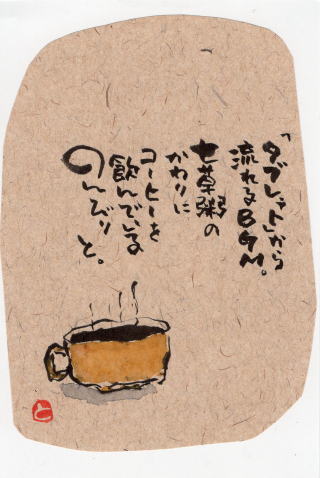 「タブレット」から
流れるBGM。
七草粥の
かわりに
コーヒーを
飲んでいる
のんびりと。
と